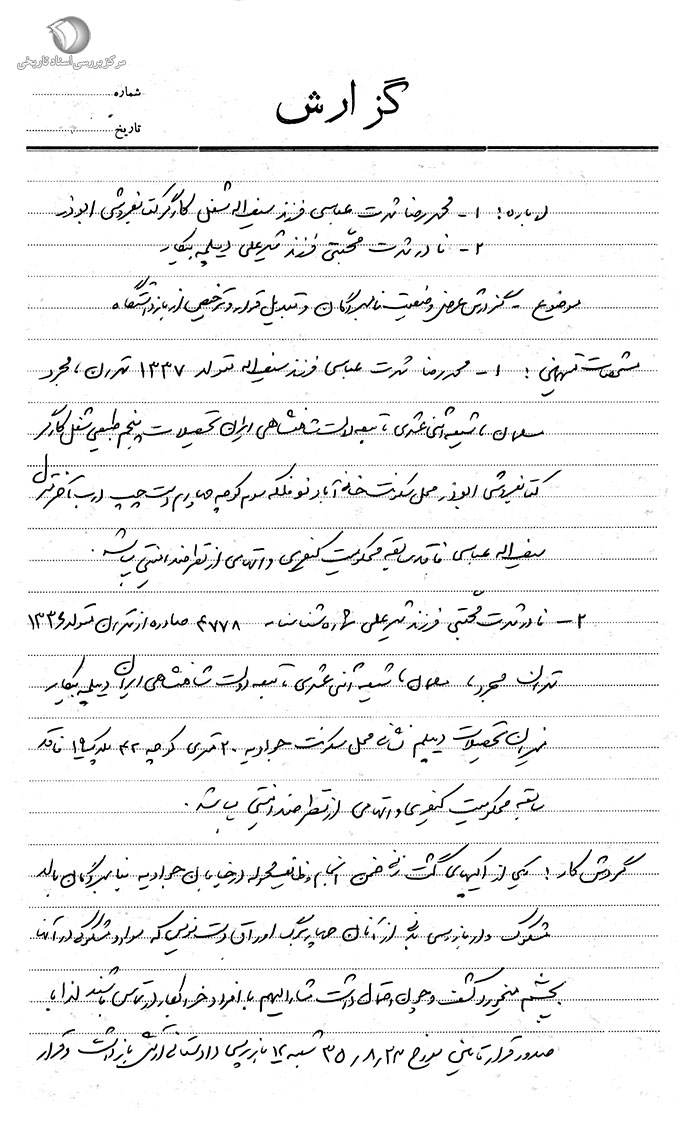 مرکز بررسی اسناد تاریخی
گزارش
شماره
تاریخ
درباره: ۱- محمدرضا قدرت عباسی فرزند سیف‌اله شغل کارگر کتابفروشی ابوذر
۲- نادر قدرت محبتی فرزند شیرعلی دیپلمه بیکار
موضوع - گزارش عرض وضعیت نامبردگان و تبدیل قرار و ترخیص از بازداشتگاه
مشخصات متهمین: ۱- محمدرضا قدرت عباسی فرزند سیف‌اله متولد ۱۳۳۷ تهران، مجرد
مسلمان، شیعه اثنی عشری، تبعه دولت شاهنشاهی ایران تحصیلات پنجم طبیعی شغل کارگر
کتابفروشی ابوذر محل سکونت خانی‌آباد نو فلکه سوم کوچه چهارم دست چپ درب آخر منزل
سیف‌اله عباسی فاقد سابقه محکومیت کیفری و اتهامی از نظر ضد امنیتی میباشد.
۲- نادر قدرت محبتی فرزند شیرعلی شماره شناسنامه ۴۷۷۸ صادره از تهران متولد ۱۳۳۶
تهران مجرد، مسلمان، شیعه اثنی عشری، تبعه دولت شاهنشاهی ایران دیپلمه بیکار
میزان تحصیلات دیپلم نشانی محل سکونت جوادیه ۲۰ متری کوچه ۴۲ پلاک ۱۹ فاقد
سابقه محکومیت کیفری و اتهامی از نظر ضد امنیتی میباشد.
گردش کار: یکی از اکیپهای گشت ضمن انجام وظایف محوله در خیابان جوادیه بنامبردگان بالا
مشکوک و در بازرسی بدنی از آنان چهار برگ اوراق دست‌نویس که مواد مشکوکی در آنها
بچشم میخورد کشف و چون احتمال داشت مشارالیهم با افراد خرابکار در تماس باشند لذا با
صدور قرار تامین مورخ ۳۵/۸/۲۳ شعبه ۱۲ بازپرسی دادستانی ارتش بازداشت و قرار